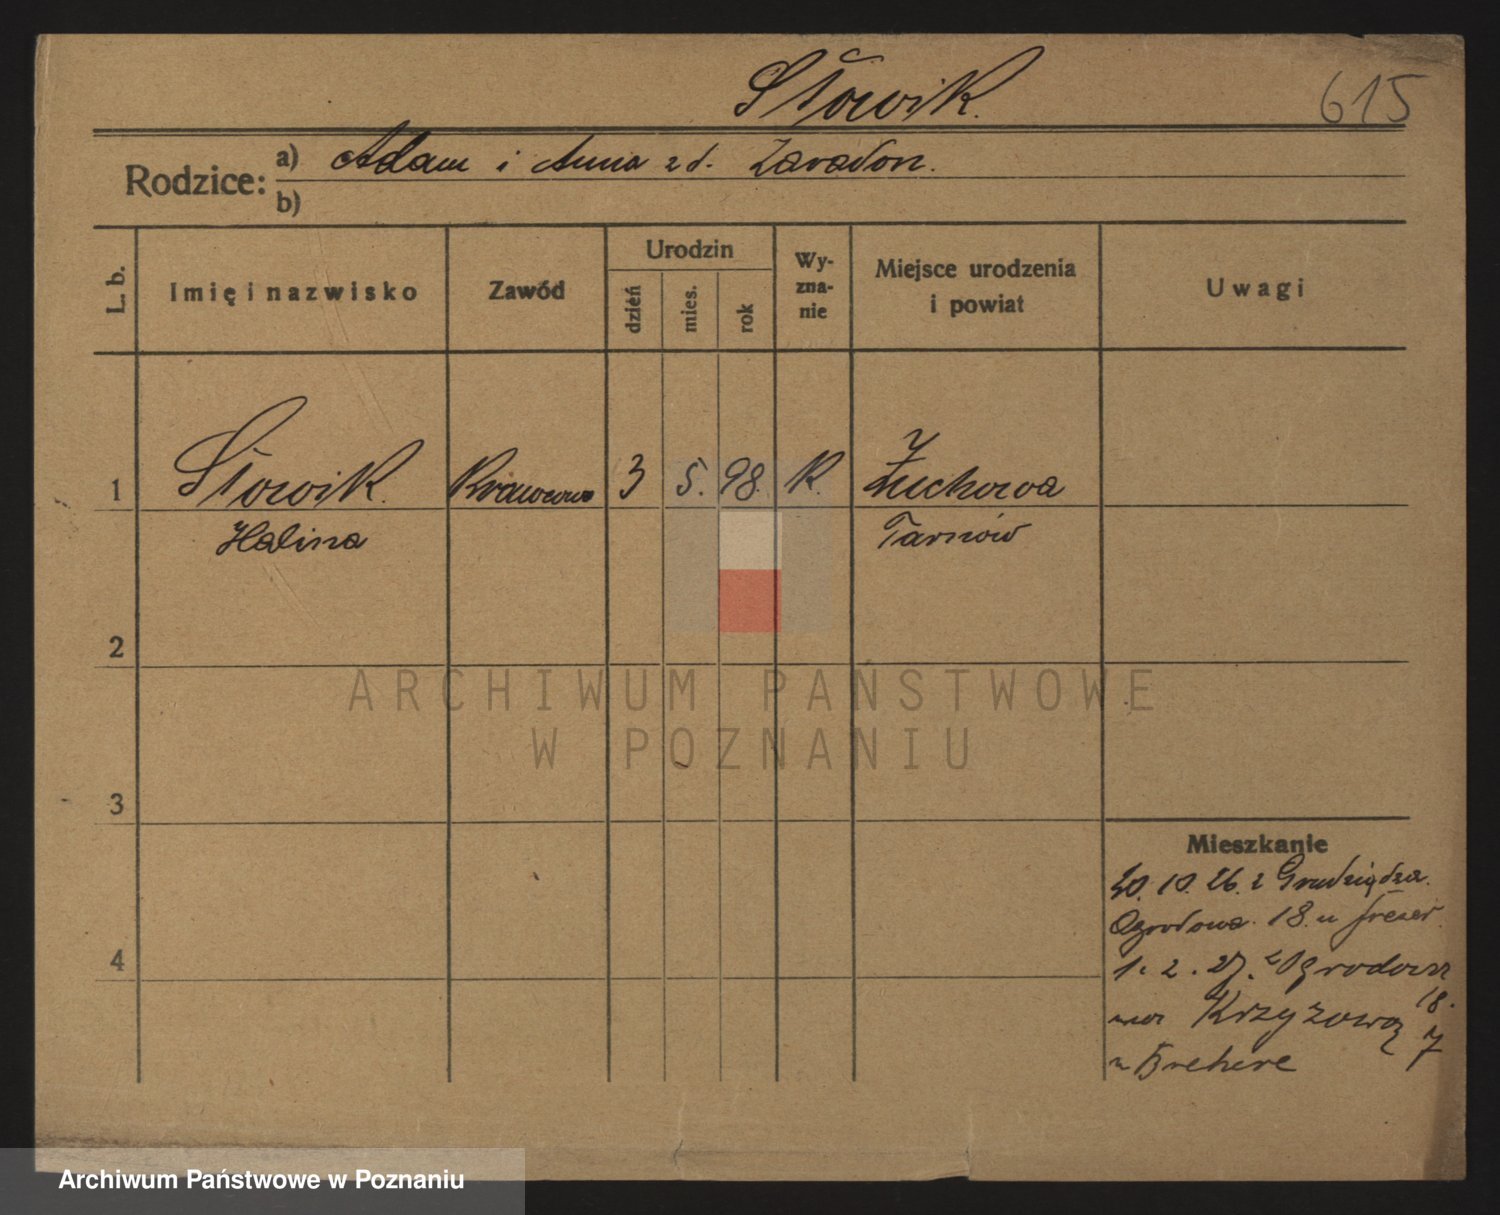 Słowik.
615
Rodzice: a) Adam i Anna z d. Zaradon.
b)
L. b.
Imię i nazwisko
Zawód
Urodzin
dzień
mies.
rok
Wy-
zna-
nie
Miejsce urodzenia
i powiat
Uwagi
1 Słowik. Krawcowa 3 5. 98. K. Żuchowa
Halina Tarnów
2
ARCHIWUM PAŃSTWOWE
W POZNANIU
3
Mieszkanie
30. 10. 26. z Grudziądza.
Ogrodowa 18. u
4
1. 2. 27. z Ogrodowa
18.
na Krzyżową 7
u Brehere
Archiwum Państwowe w Poznaniu